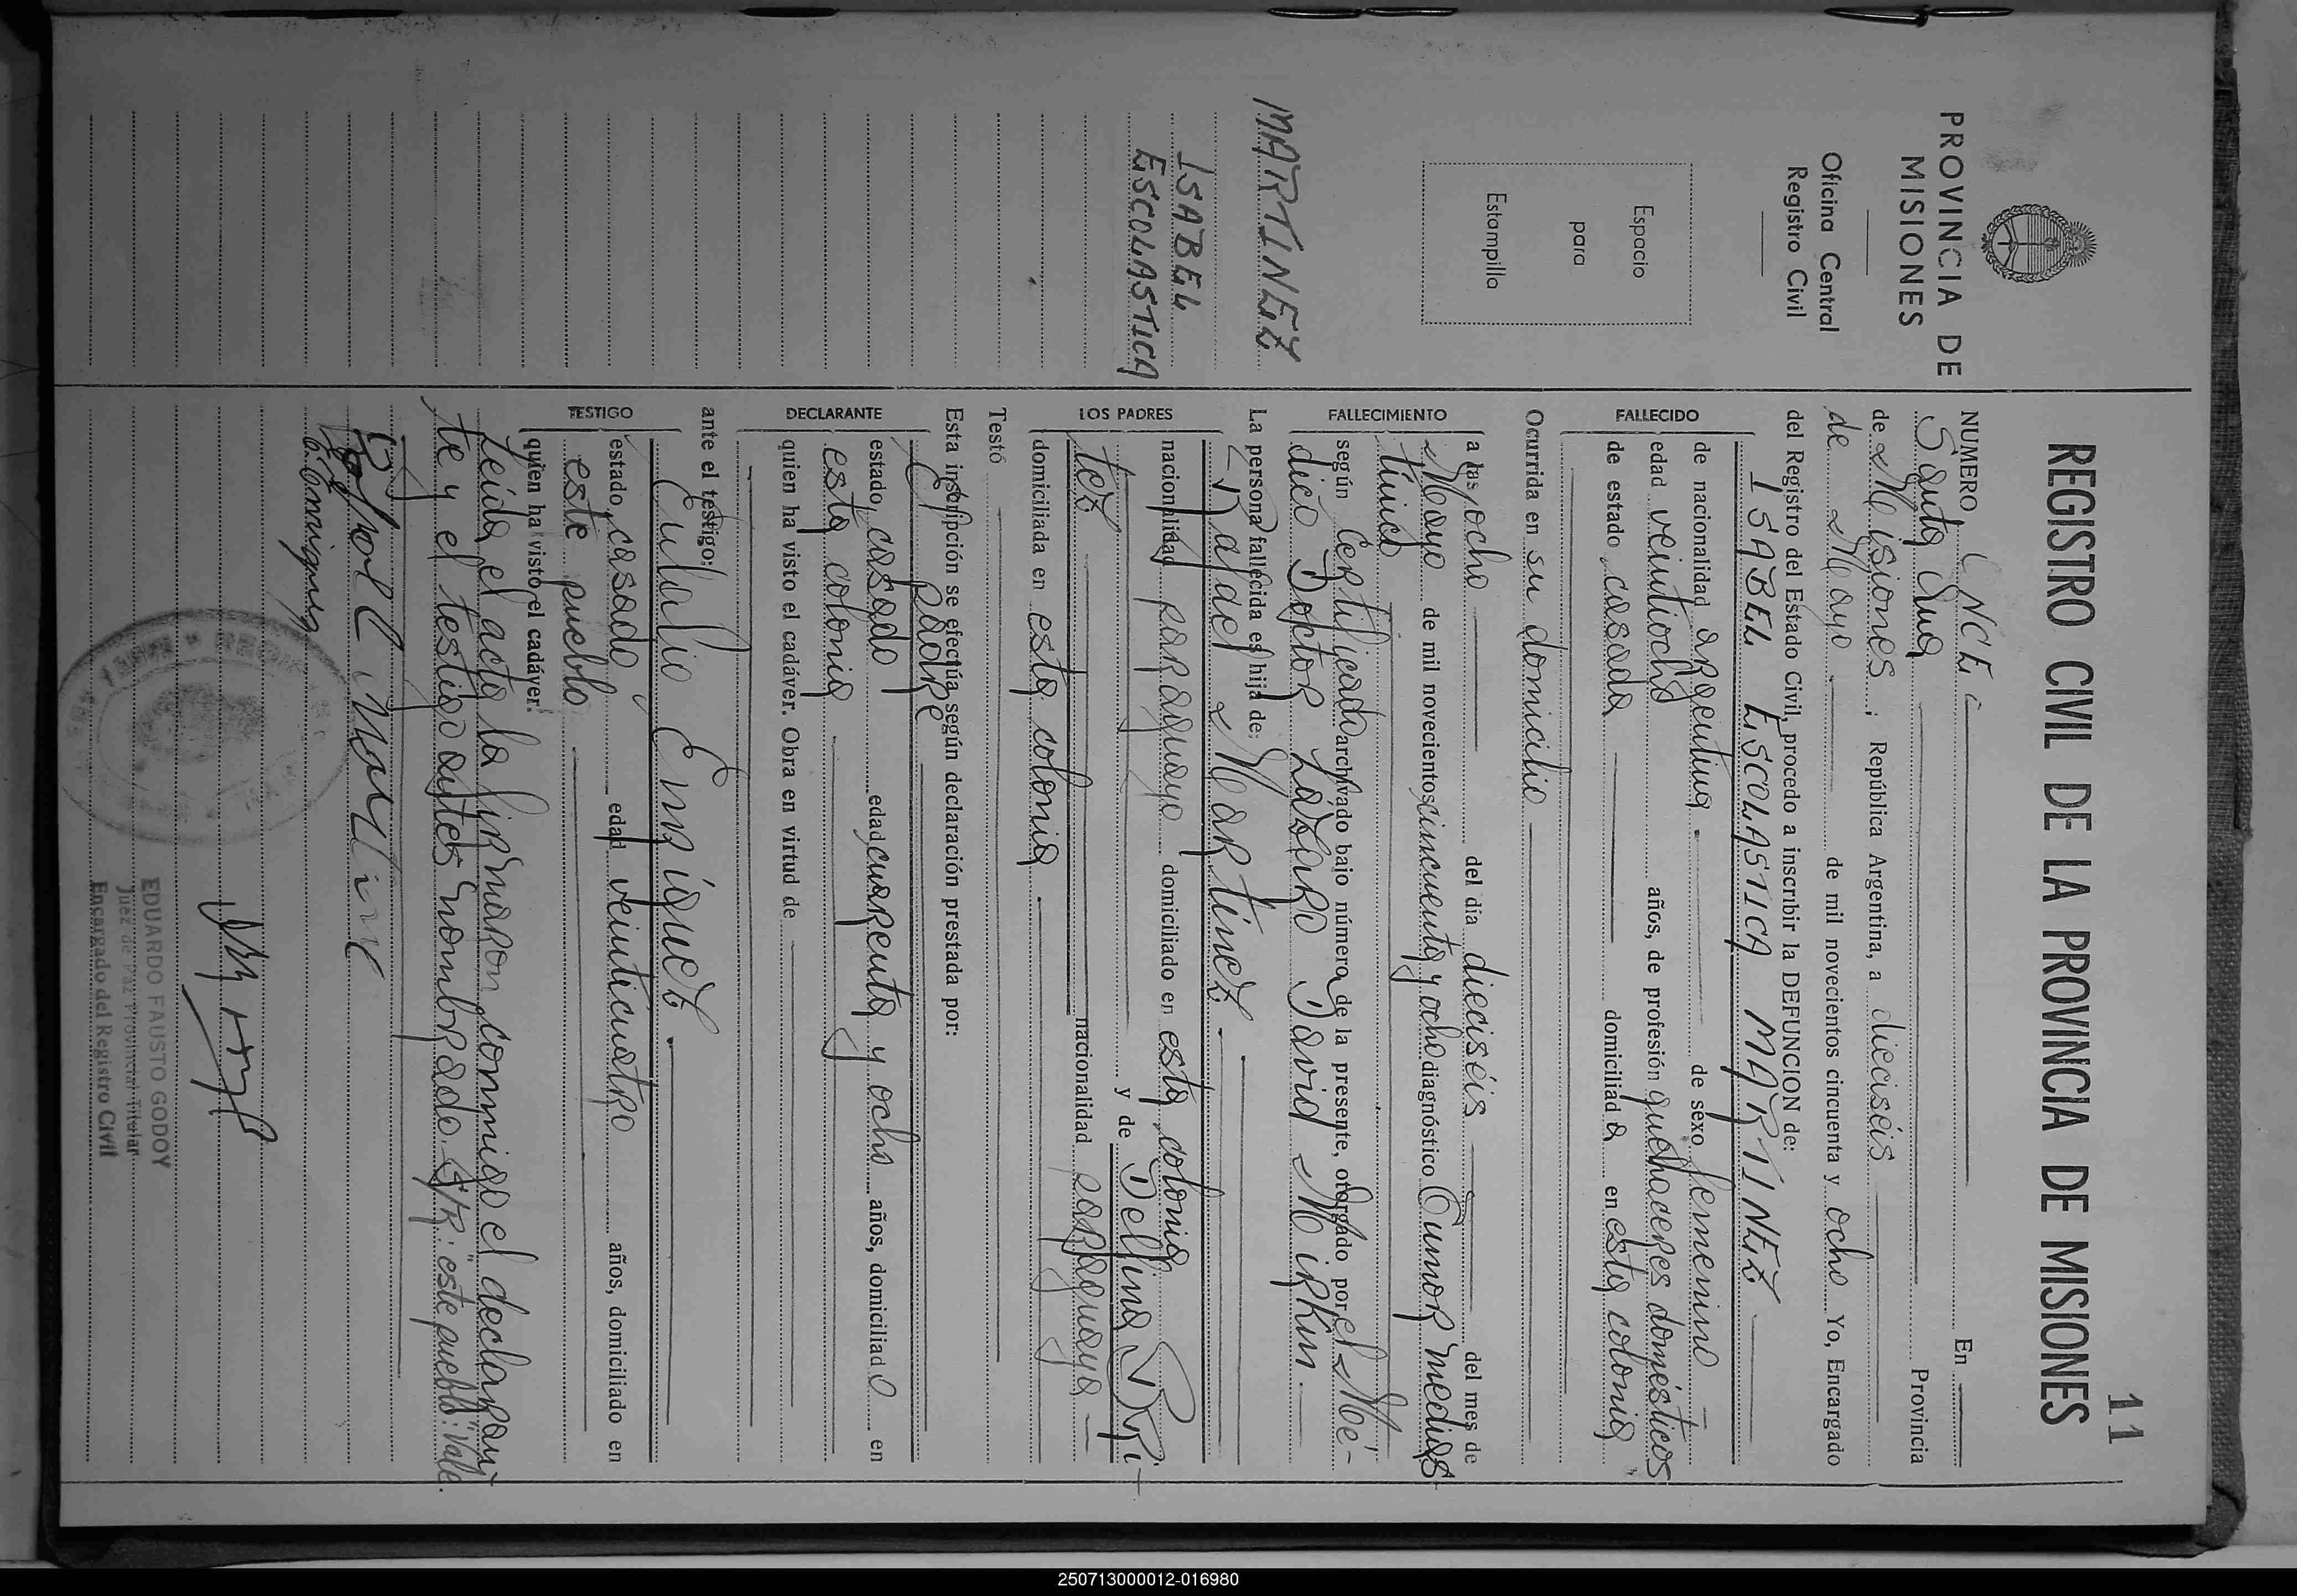 11
REGISTRO CIVIL DE LA PROVINCIA DE MISIONES
PROVINCIA DE
MISIONES
Oficina Central
Registro Civil
Espacio
para
Estampilla
MARTINEZ
ISABEL
ESCOLASTICA
NUMERO ONCE En
Santa Ana Provincia
de Misiones ; República Argentina, a dieciséis
de Mayo de mil novecientos cincuenta y ocho Yo, Encargado
del Registro del Estado Civil, procedo a inscribir la DEFUNCION de:
ISABEL ESCOLASTICA MARTINEZ
FALLECIDO
de nacionalidad argentina de sexo femenino
edad veintiocho años, de profesión quehaceres domésticos
de estado casada domiciliada en esta colonia
Ocurrida en su domicilio
FALLECIMIENTO
a las ocho del día dieciséis del mes de
Mayo de mil novecientos cincuenta y ocho diagnóstico Tumor medias
tínico
según Certificado archivado bajo número de la presente, otorgado por el Mé-
dico Doctor Lázaro David Mirkin.
La persona fallecida es hija de:
LOS PADRES
Rafael Martínez.
nacionalidad paraguayo domiciliado en esta colonia
y de Delfina Bri-
tez nacionalidad paraguaya
domiciliada en esta colonia.
Testó
Esta inscripción se efectúa según declaración prestada por:
DECLARANTE
El padre
estado casado edad cuarenta y ocho años, domiciliado en
esta colonia
quien ha visto el cadáver. Obra en virtud de
ante el testigo:
TESTIGO
Eulalio Enríquez.
estado casado edad veinticuatro años, domiciliado en
este pueblo
quien ha visto el cadáver.
Leída el acta la firmaron conmigo el declaran-
te y el testigo antes nombrado. S/R: "este pueblo": Vale.
E. Enriquez
EDUARDO FAUSTO GODOY
Juez de Paz Provincial Titular
Encargado del Registro Civil
250713000012-016980